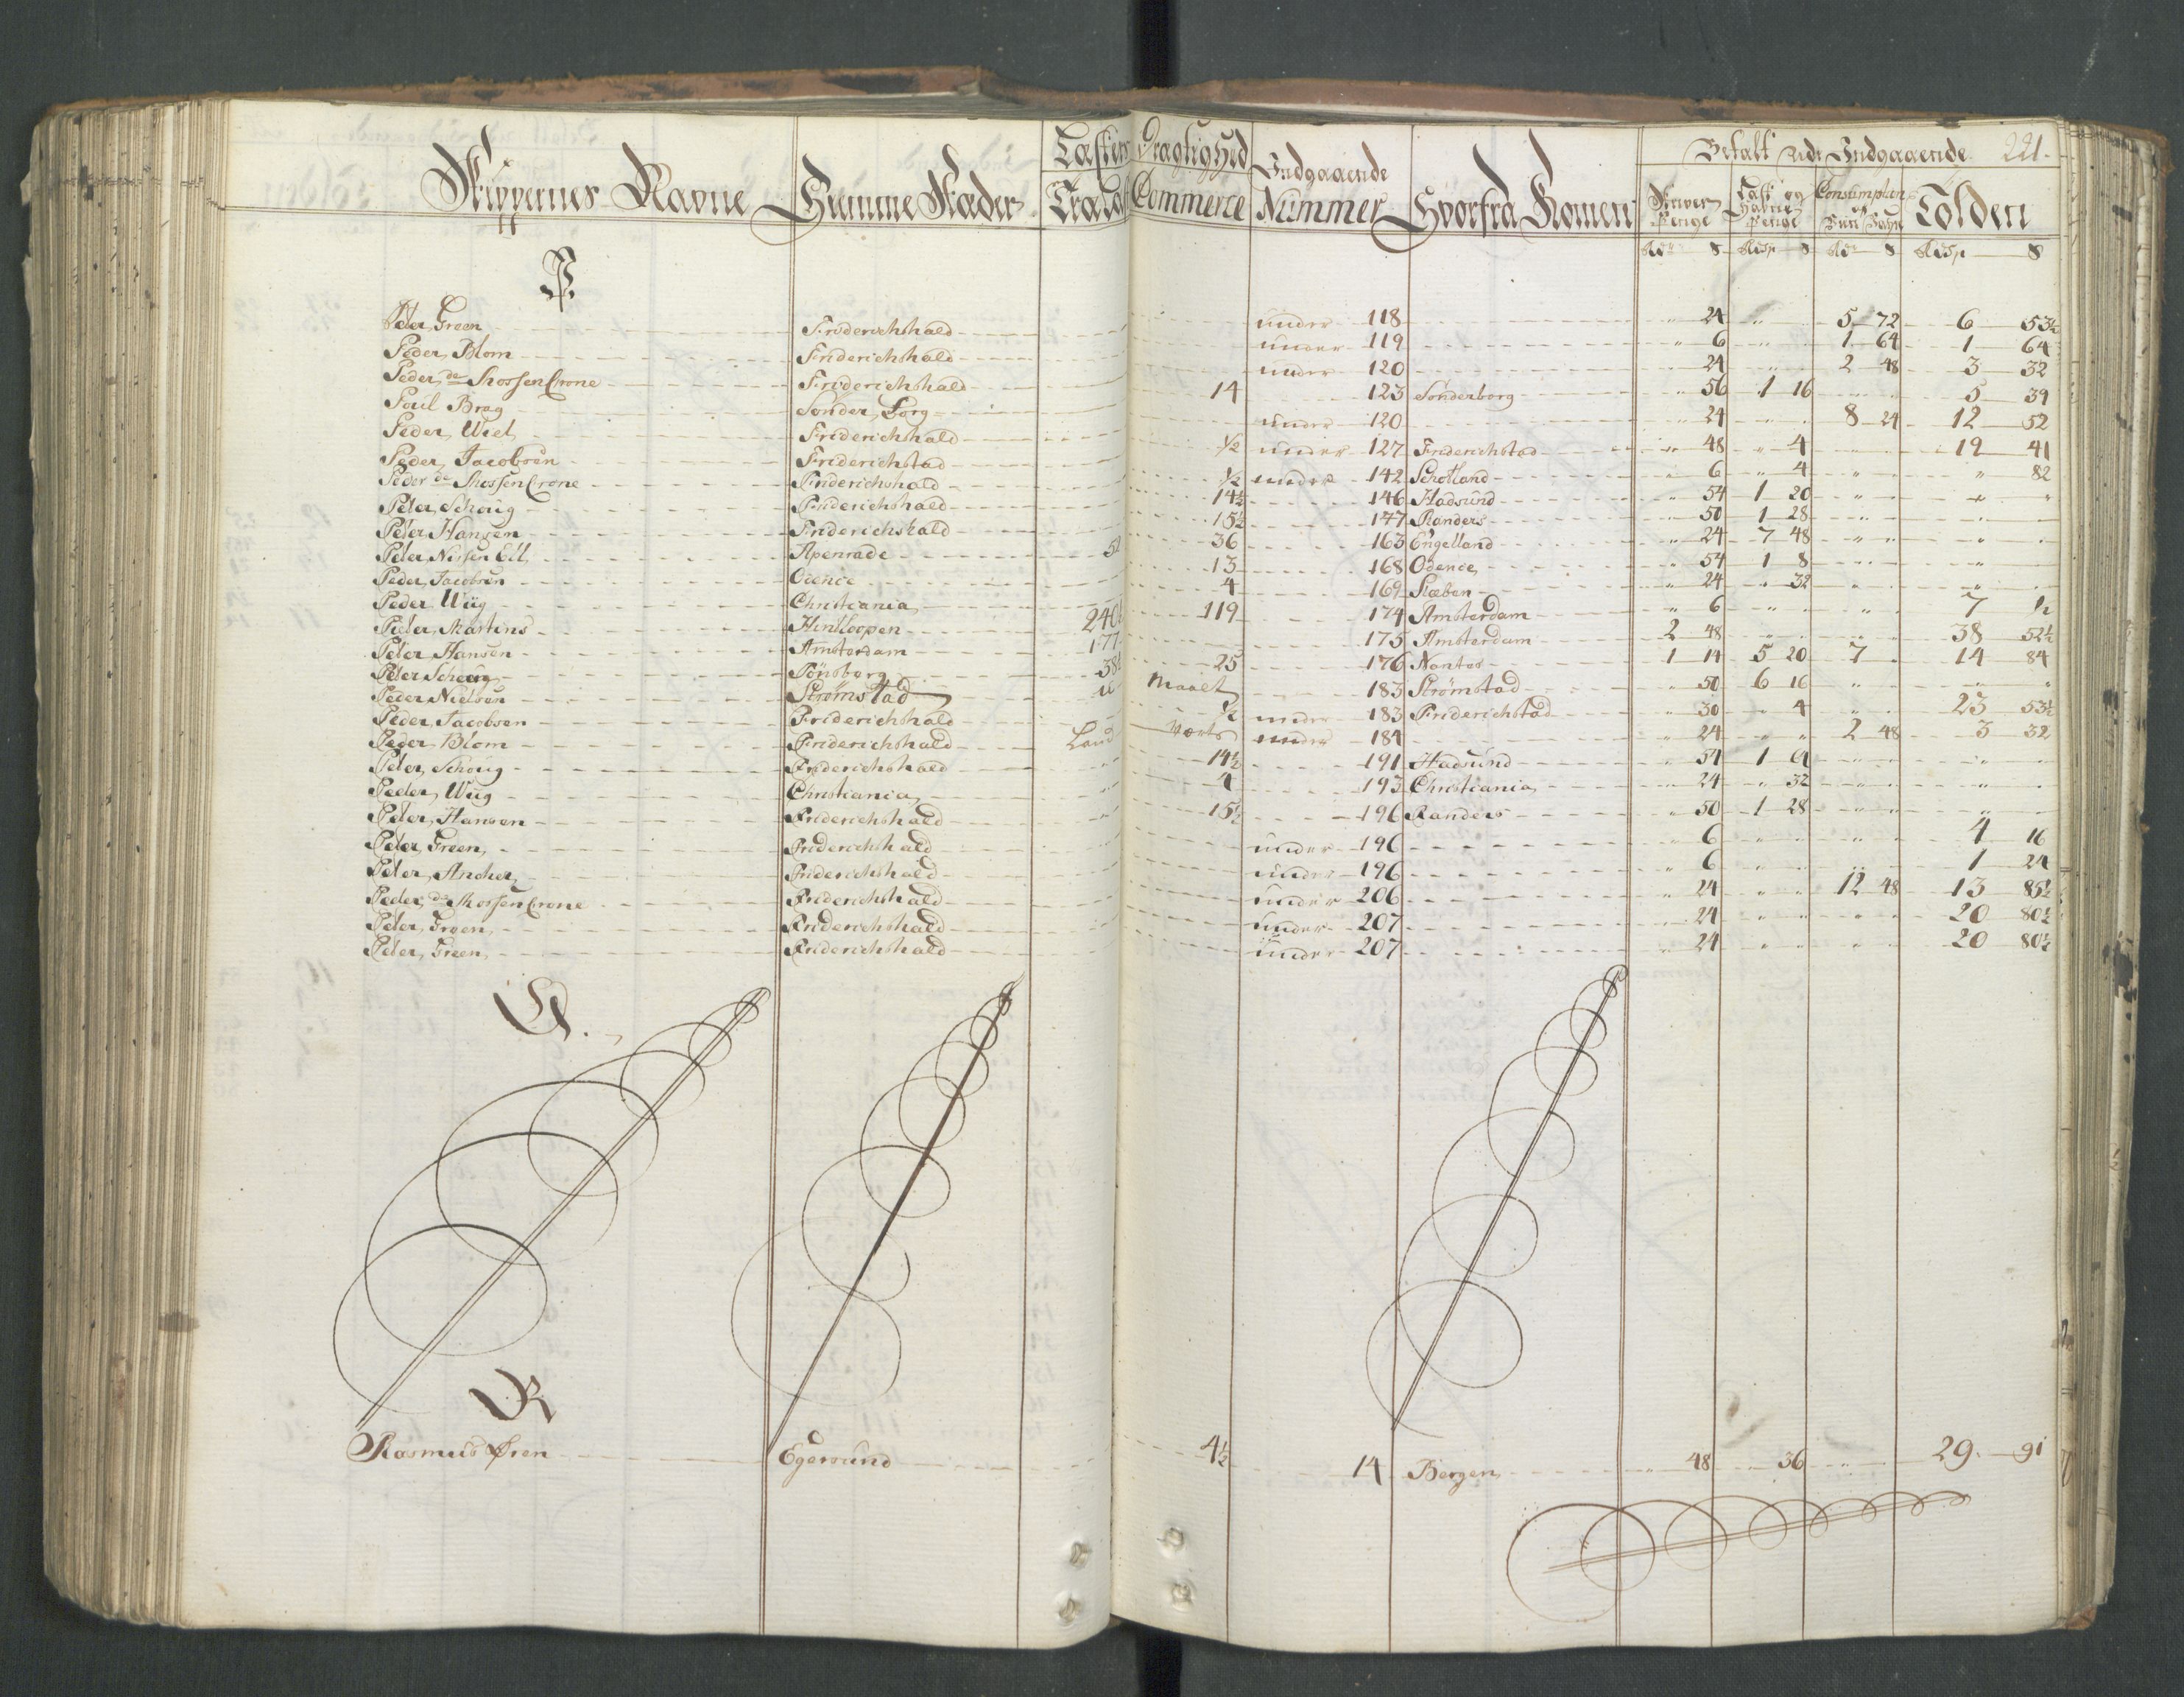 221.
Skippernes Navne Hiemme Stæder Læsters Drægtighed Indgaaende Hvorfra Komen Betalt ved Indgaaende
Træld Commerce Nummer Penge Last og Havne Penge Consumption Tolden
P.
Peter Green Friderichshald under 118 24 5 72 6 53½
Peder Blom Friderichshald under 119 6 1 64 1 64
Peder de Mossen Crone Friderichshald under 120 24 2 48 3 32
Poul Brag Sønder Borg 14 123 Sønderborg 56 1 16 5 39
Peder Wiel Friderichshald under 120 24 8 24 12 52
Peder Jacobsen Friderichstad ½ under 127 Friderichstad 48 4 19 41
Peder de Mossen Crone Friderichshald ½ under 142 Schotland 6 4 82
Peter Schoug Friderichshald 14½ 146 Hadsund 54 1 20
Peder Hansen Friderichshald 15½ 147 Randers 50 1 28
Peter Nissen Apenrade 52 36 163 Engelland 24 7 48
Peder Jacobsen Odence 13 168 Odence 54 1 8
Peder Wiig Christiania 4 169 Ræben 24 32
Pieter Martins Hinlloopen 240½ 119 174 Amsterdam 6 7 ½
Peter Hansen Amsterdam 177 175 Amsterdam 2 48 38 52½
Peter Tönsberg 38½ 25 176 Nantes 1 14 5 20 7 14 84
Peder Nielsen Strømstad u Maalt 183 Strømstad 50 6 16
Peder Jacobsen Friderichshald ½ under 183 Friderichstad 30 4 23 53½
Peder Blom Friderichshald Land værts under 184 24 2 48 3 32
Peter Schoug Friderichshald 14½ 191 Hadsund 54 1 4
Peder Wiig Christiania 4 193 Christiania 24 32
Peter Hansen Friderichshald 15½ 196 Randers 50 1 28
Peter Green Friderichshald under 196 6 4 16
Peter Ancher Friderichshald under 196 6 1 24
Peder de Mossen Crone Friderichshald under 206 24 12 48 13 85½
Peter Green Friderichshald under 207 24 20 80½
Peter Green Friderichshald under 207 24 20 80½
Q.
R
Rasmus Øren Egersund 4½ 14 Bergen 48 36 29 91